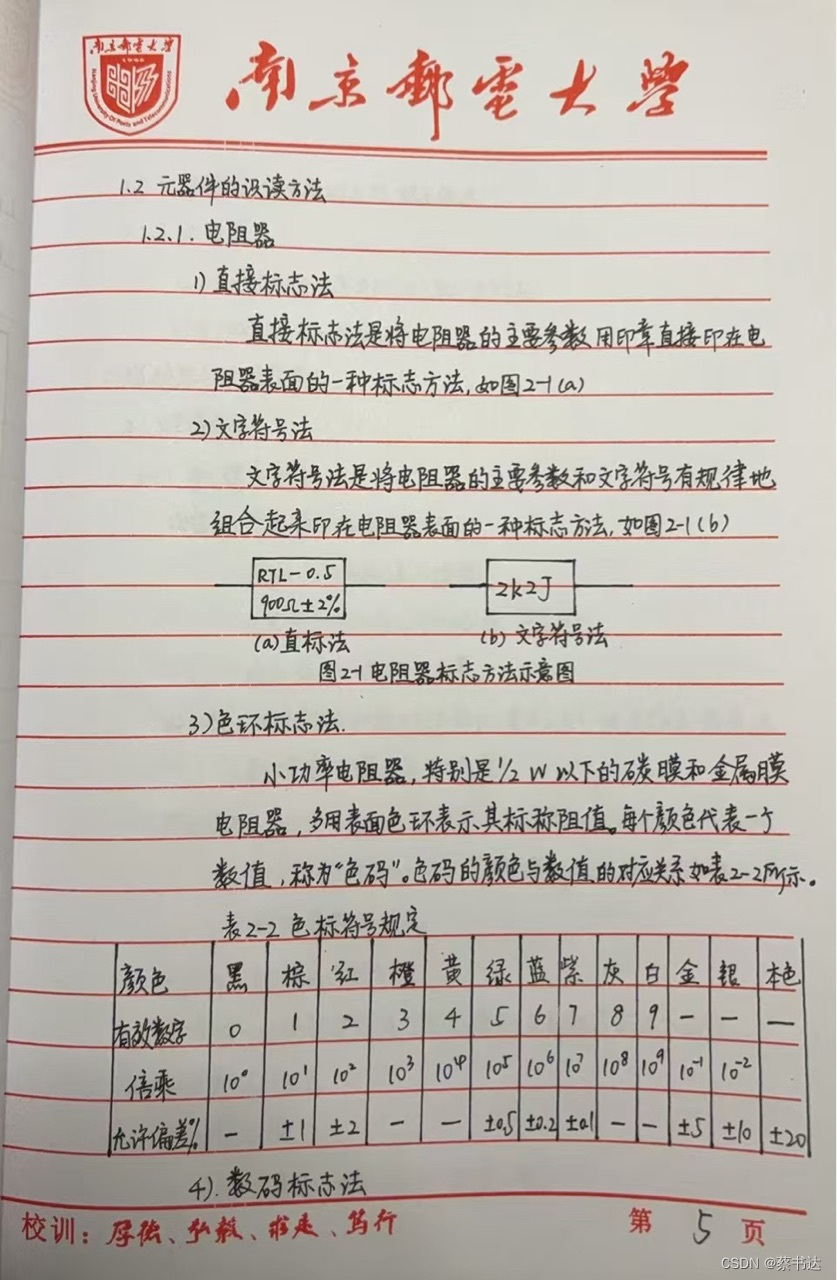 南京邮电大学
1942
Nanjing University Of Posts and Telecommunications
南京郵電大學
1.2 元器件的识读方法
1.2.1. 电阻器
1) 直接标志法
直接标志法是将电阻器的主要参数用印章直接印在电
阻器表面的一种标志方法,如图2-1(a)
2) 文字符号法
文字符号法是将电阻器的主要参数和文字符号有规律地
组合起来印在电阻器表面的一种标志方法,如图2-1(b)
RTL-0.5
900Ω±2%
2k2J
(a)直标法 (b) 文字符号法
图2-1 电阻器标志方法示意图
3)色环标志法.
小功率电阻器,特别是1/2 W 以下的碳膜和金属膜
电阻器,多用表面色环表示其标称阻值。每个颜色代表一个
数值,称为"色码"。色码的颜色与数值的对应关系如表2-2所示。
表2-2 色标符号规定
颜色 黑 棕 红 橙 黄 绿 蓝 紫 灰 白 金 银 本色
有效数字 0 1 2 3 4 5 6 7 8 9 - - -
倍乘 10⁰ 10¹ 10² 10³ 10⁴ 10⁵ 10⁶ 10⁷ 10⁸ 10⁹ 10⁻¹ 10⁻²
允许偏差% - ±1 ±2 - - ±0.5 ±0.2 ±0.1 - - ±5 ±10 ±20
4). 数码标志法
校训:厚德、弘毅、求是、笃行
第 5 页
CSDN @蔡书达